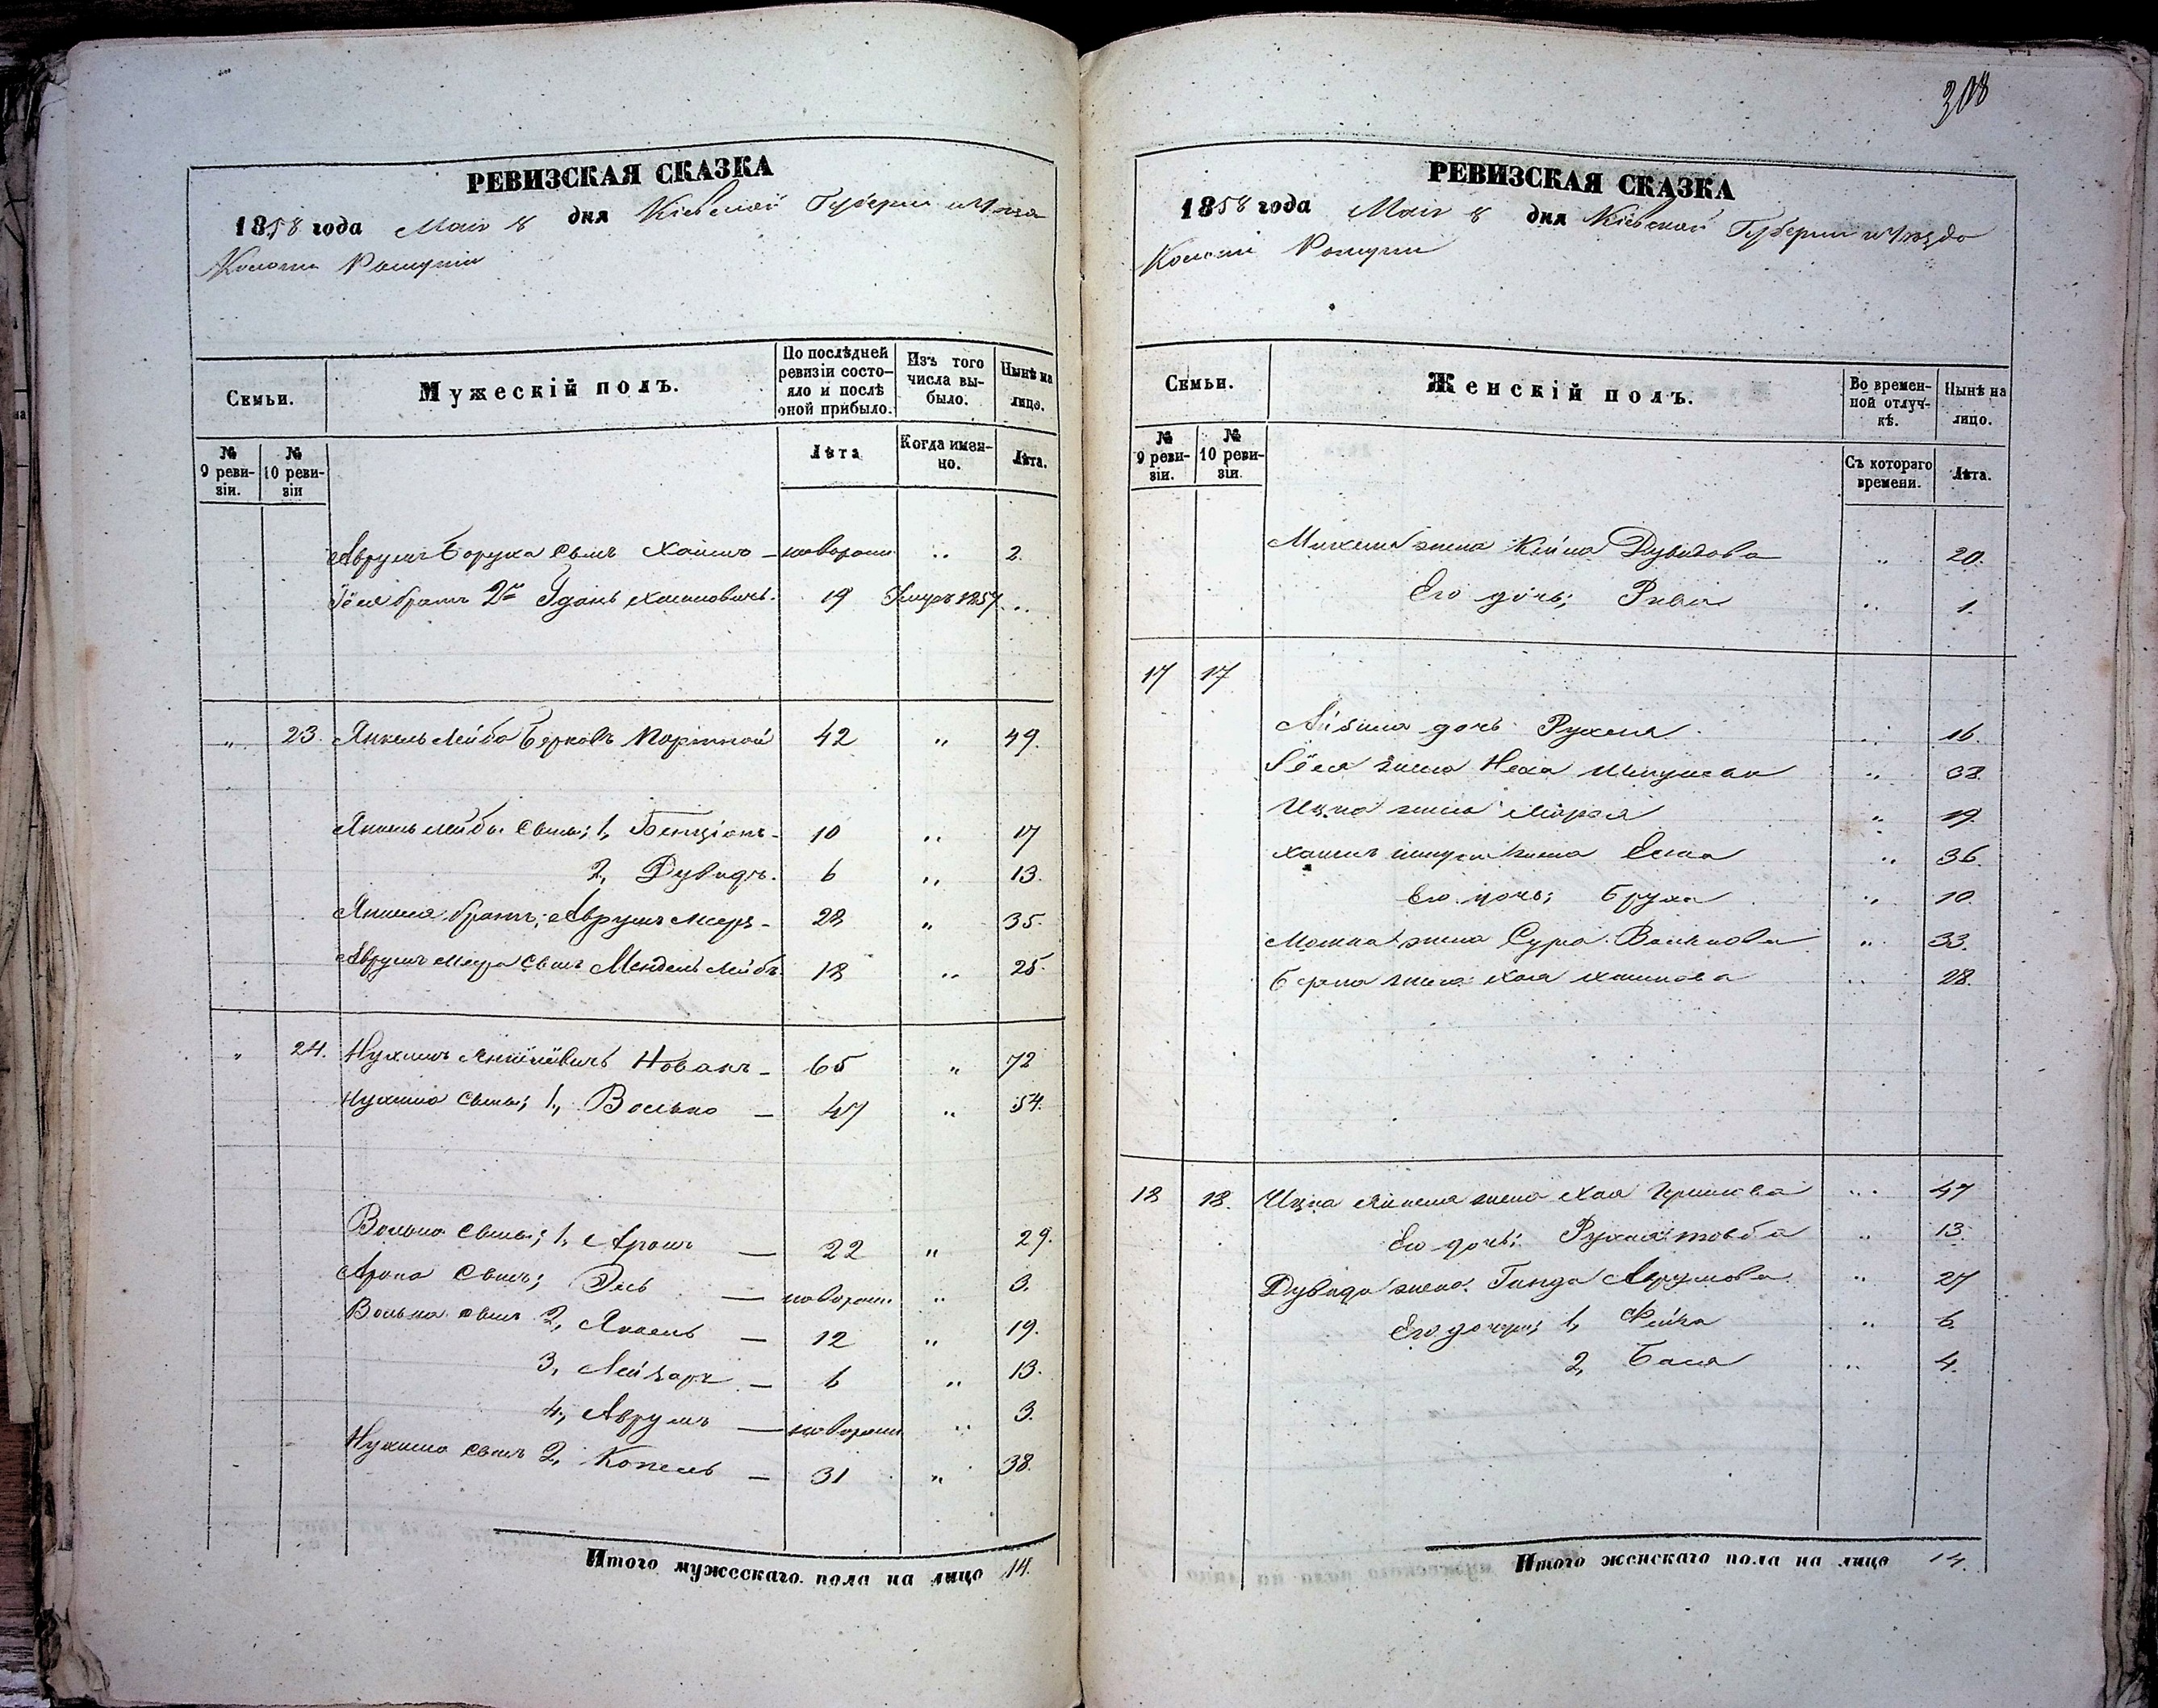 308
РЕВИЗСКАЯ СКАЗКА
1858 года Маія 8 дня Кіевской Губерніи и Уезда
Колоніи
Семьи.
Мужескій полъ.
По послѣдней ревизіи состояло и послѣ оной прибыло.
Изъ того числа выбыло.
Нынѣ на лицо.
№ 9 ревизіи.
№ 10 ревизіи
Лѣта
Когда именно.
Лѣта.
Аврумъ Боруха сынъ Хаимъ — новорожд „ 2.
Іося братъ 2й 19 Умеръ 1857 „
„ 23. Янкель Лейба Берковъ Портной 42 „ 49.
Янкель Лейбы сыны; 1, Бенціонъ - 10 „ 17
2, Дувидъ. 6 „ 13.
Янкеля братъ; Аврумъ Меер - 28 „ 35.
Аврумъ Меера сынъ Мендель Лейбъ 18 „ 25.
„ 24. Нухимъ Янкелевичъ Новакъ - 65 „ 72
Нухима сыны; 1, Волько — 47 „ 54.
Волька сыны; 1, Аронъ — 22 „ 29.
Арона сынъ; Эль — новорожд. „ 3.
Волька сынъ 2, Янкель — 12 „ 19.
3, Лейзаръ — 6 „ 13.
4, Аврумъ — новорожд „ 3.
Нухима сынъ 2, Копель — 31 „ 38.
Итого мужескаго пола на лицо 14.
РЕВИЗСКАЯ СКАЗКА
1858 года Маія 8 дня Кіевской Губерніи и Уезда
Колоніи
Семьи.
Женскій полъ.
Во временной отлучкѣ.
Нынѣ на лицо.
№ 9 ревизіи.
№ 10 ревизіи.
Съ котораго времени.
Лѣта.
Михеля жена Кейла Дувидова „ 20.
Его дочь; Рива „ 1.
17 17
Лейзика дочь Рухля „ 16.
Іося жена Неха „ 38.
Ицка жена Марья „ 19.
жена „ 36.
Его дочь; Бруха „ 10.
Мошка жена Сура Волькова „ 33.
Берка жена Хая Хаимова „ 28.
18 18. Ицка Янкеля жена Хая Гершкова „ 47
Его дочь; Рухля товба „ 13.
Дувида жена Гинда Аврумова „ 27
Его дочери; 1, Фейга „ 6.
2, Бася „ 4.
Итого женскаго пола на лицо 14.